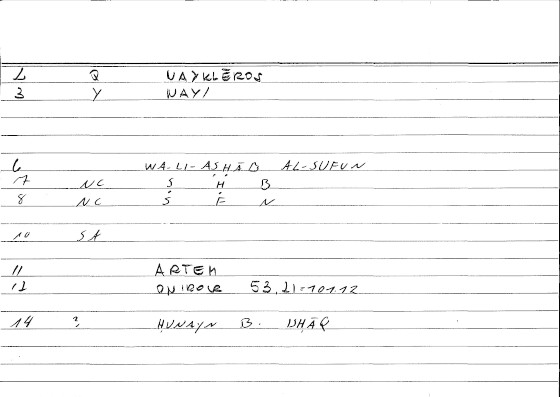 2 Q NAYKLĒROS
3 Y NAY/
6 WA-LI-AṢḤĀB AL-SUFUN
7 NC Ṣ Ḥ B
8 NC S F N
10 SA
11 ARTEM
12 ONIROCR 53,21
14 ? HUNAYN B. ISHĀQ